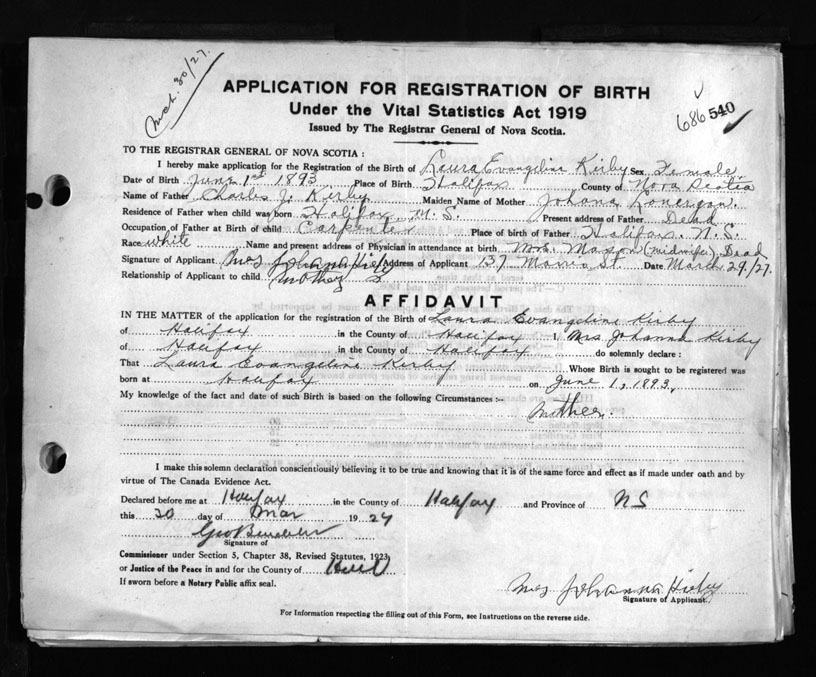 Mch. 30/27.
APPLICATION FOR REGISTRATION OF BIRTH
686 540
Under the Vital Statistics Act 1919
Issued by The Registrar General of Nova Scotia.
TO THE REGISTRAR GENERAL OF NOVA SCOTIA :
I hereby make application for the Registration of the Birth of Laura Evangeline Kirby Sex Female
Date of Birth June 1st 1893 Place of Birth Halifax County of Nova Scotia
Name of Father Charles J. Kirby Maiden Name of Mother Johana
Residence of Father when child was born Halifax, N.S. Present address of Father Dead
Occupation of Father at Birth of child Carpenter Place of birth of Father Halifax. N.S.
Race white Name and present address of Physician in attendance at birth Mrs. Mason (midwife) Dead
Signature of Applicant Mrs Johanna Kirby Address of Applicant 137 Morris St. Date March 29./27.
Relationship of Applicant to child mother
AFFIDAVIT
IN THE MATTER of the application for the registration of the Birth of Laura Evangeline Kirby
of Halifax in the County of Halifax I Mrs Johanna Kirby
of Halifax in the County of Halifax do solemnly declare :
That Laura Evangeline Kirby Whose Birth is sought to be registered was
born at Halifax on June 1, 1893.
My knowledge of the fact and date of such Birth is based on the following Circumstances :-
Mother.
I make this solemn declaration conscientiously believing it to be true and knowing that it is of the same force and effect as if made under oath and by
virtue of The Canada Evidence Act.
Declared before me at Halifax in the County of Halifax and Province of NS
this 30 day of Mar 1927
Geo
Signature of
Commissioner under Section 5, Chapter 38, Revised Statutes, 1923,
or Justice of the Peace in and for the County of
If sworn before a Notary Public affix seal.
Mrs Johanna Kirby
Signature of Applicant.
For Information respecting the filling out of this Form, see Instructions on the reverse side.